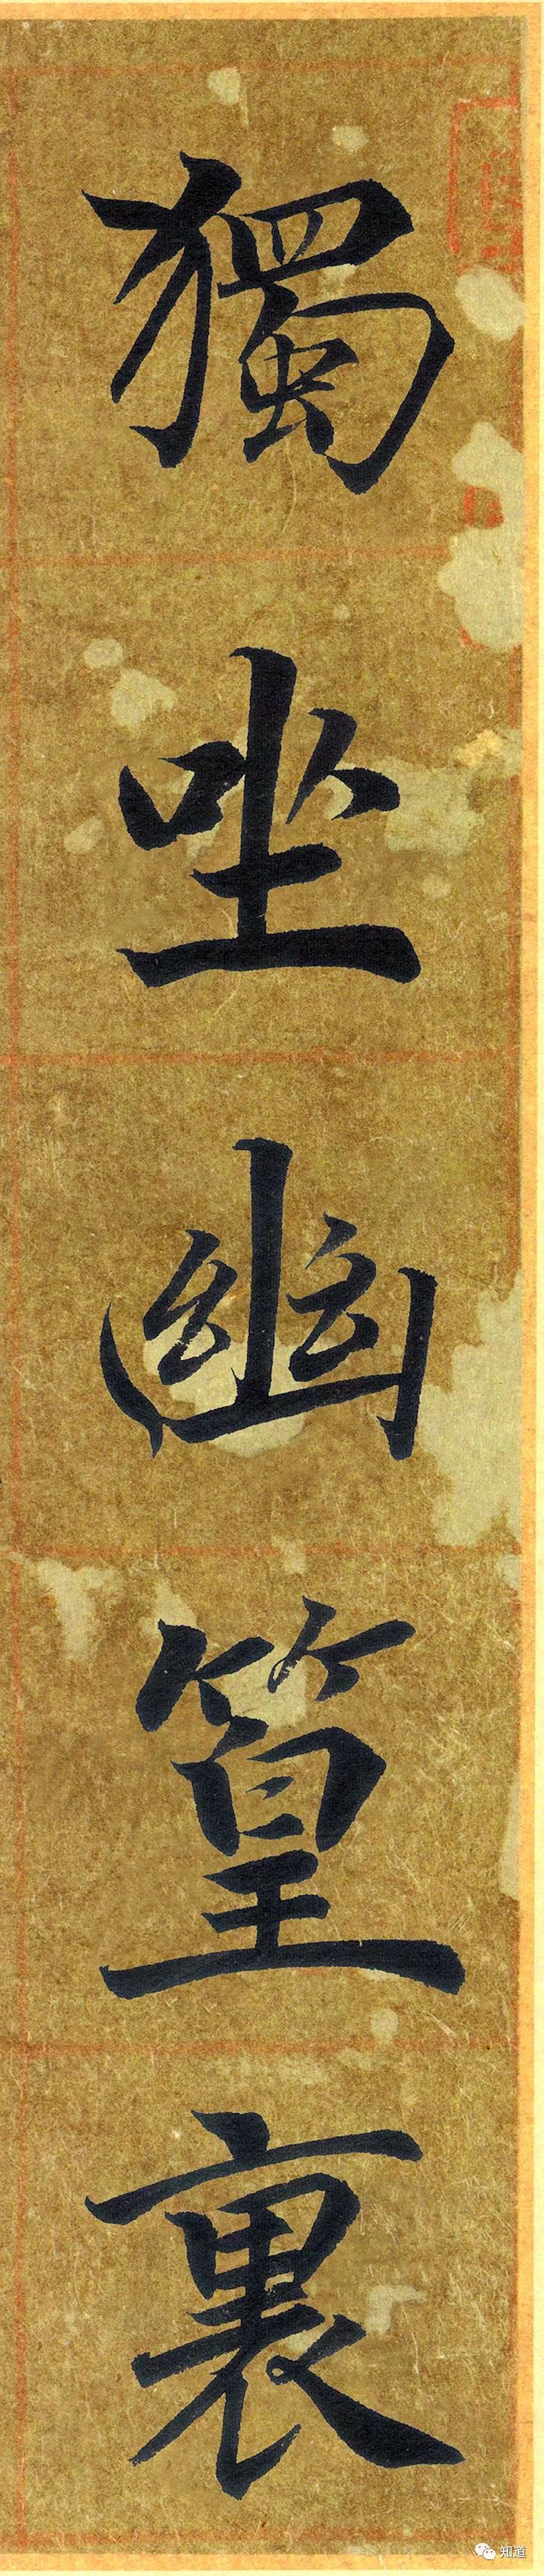 獨坐幽篁裏
知道